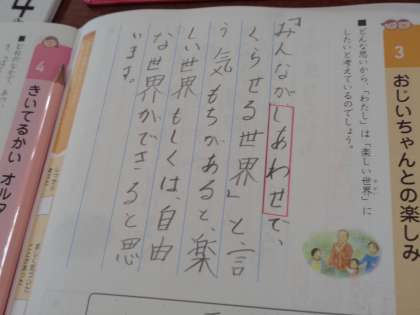 3
おじいちゃんとの楽しみ
■どんな思いから、「わたし」は「楽しい世界」に
したいと考えているのでしょう。
「みんながしあわせで、
くらせる世界」と、言
う気もちがあると、楽
しい世界もしくは、自由
な世界ができると思
います。
4
きいてるかい オルタ